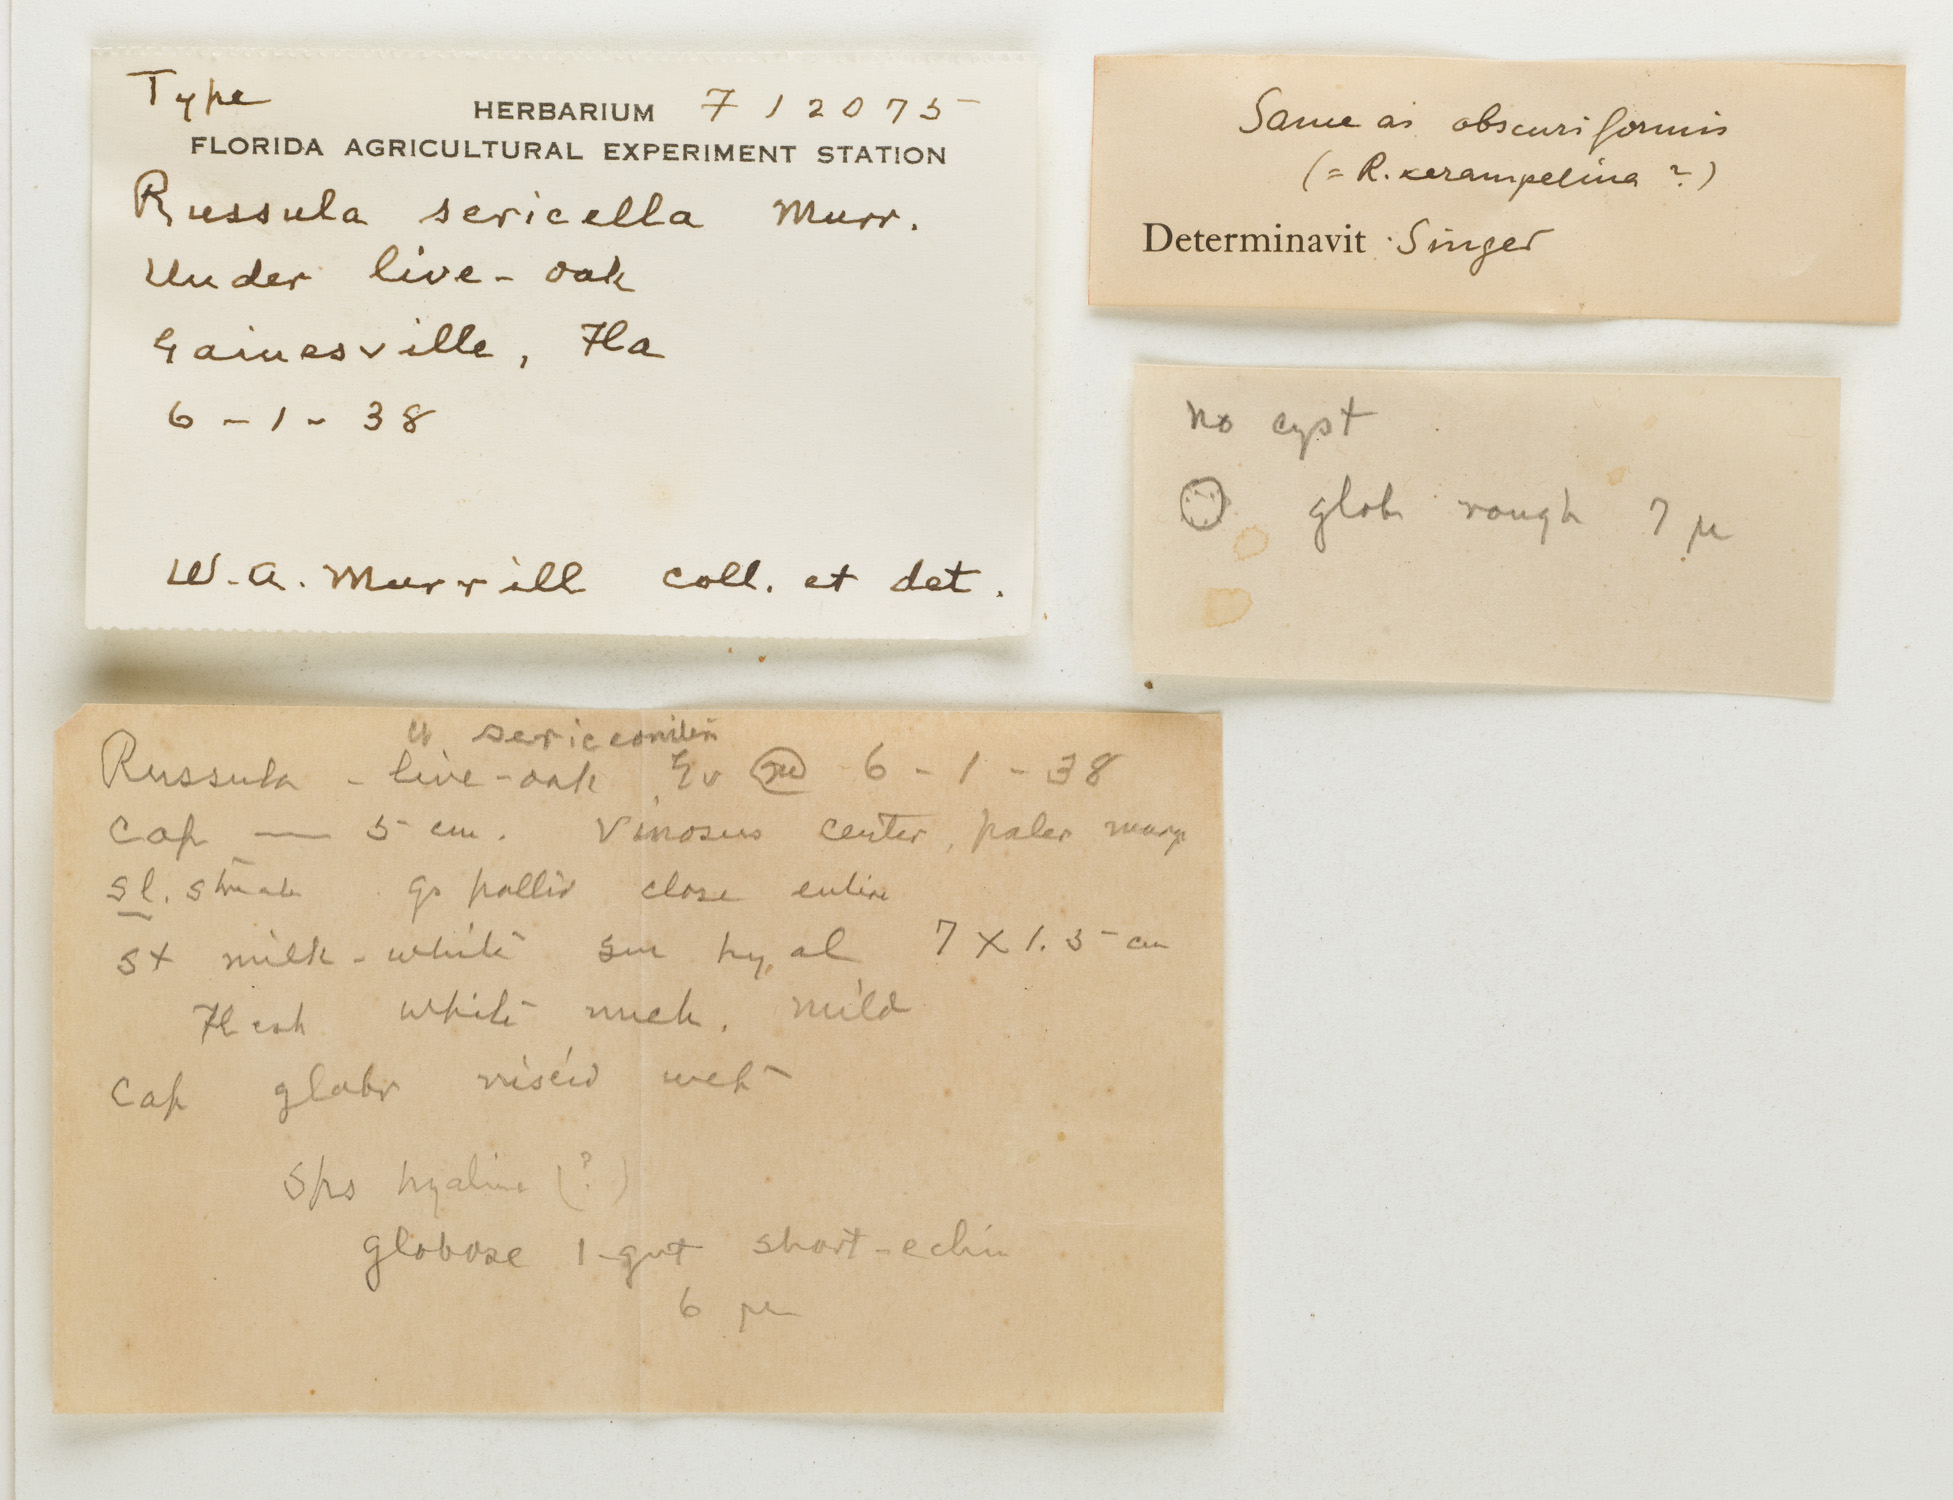 Type
HERBARIUM F 12075
FLORIDA AGRICULTURAL EXPERIMENT STATION
Russula sericella Murr.
Under live-oak
Gainesville, Fla
6-1-38
W.A. Murrill coll. et det.
Same as obscuriformis
(= R. xerampelina ?)
Determinavit Singer
no cyst
glob rough 7 µ
sericeonitens
Russula - live-oak Gv 6-1-38
Cap — 5 cm. Vinosus center, paler marg
sl. striate gs pallid close entire
st milk-white sm hyal 7 X 1.5 cm
Flesh white mild
Cap glabr viscid wet
Sps hyaline (?)
globose 1-gut short-echin
6 µ